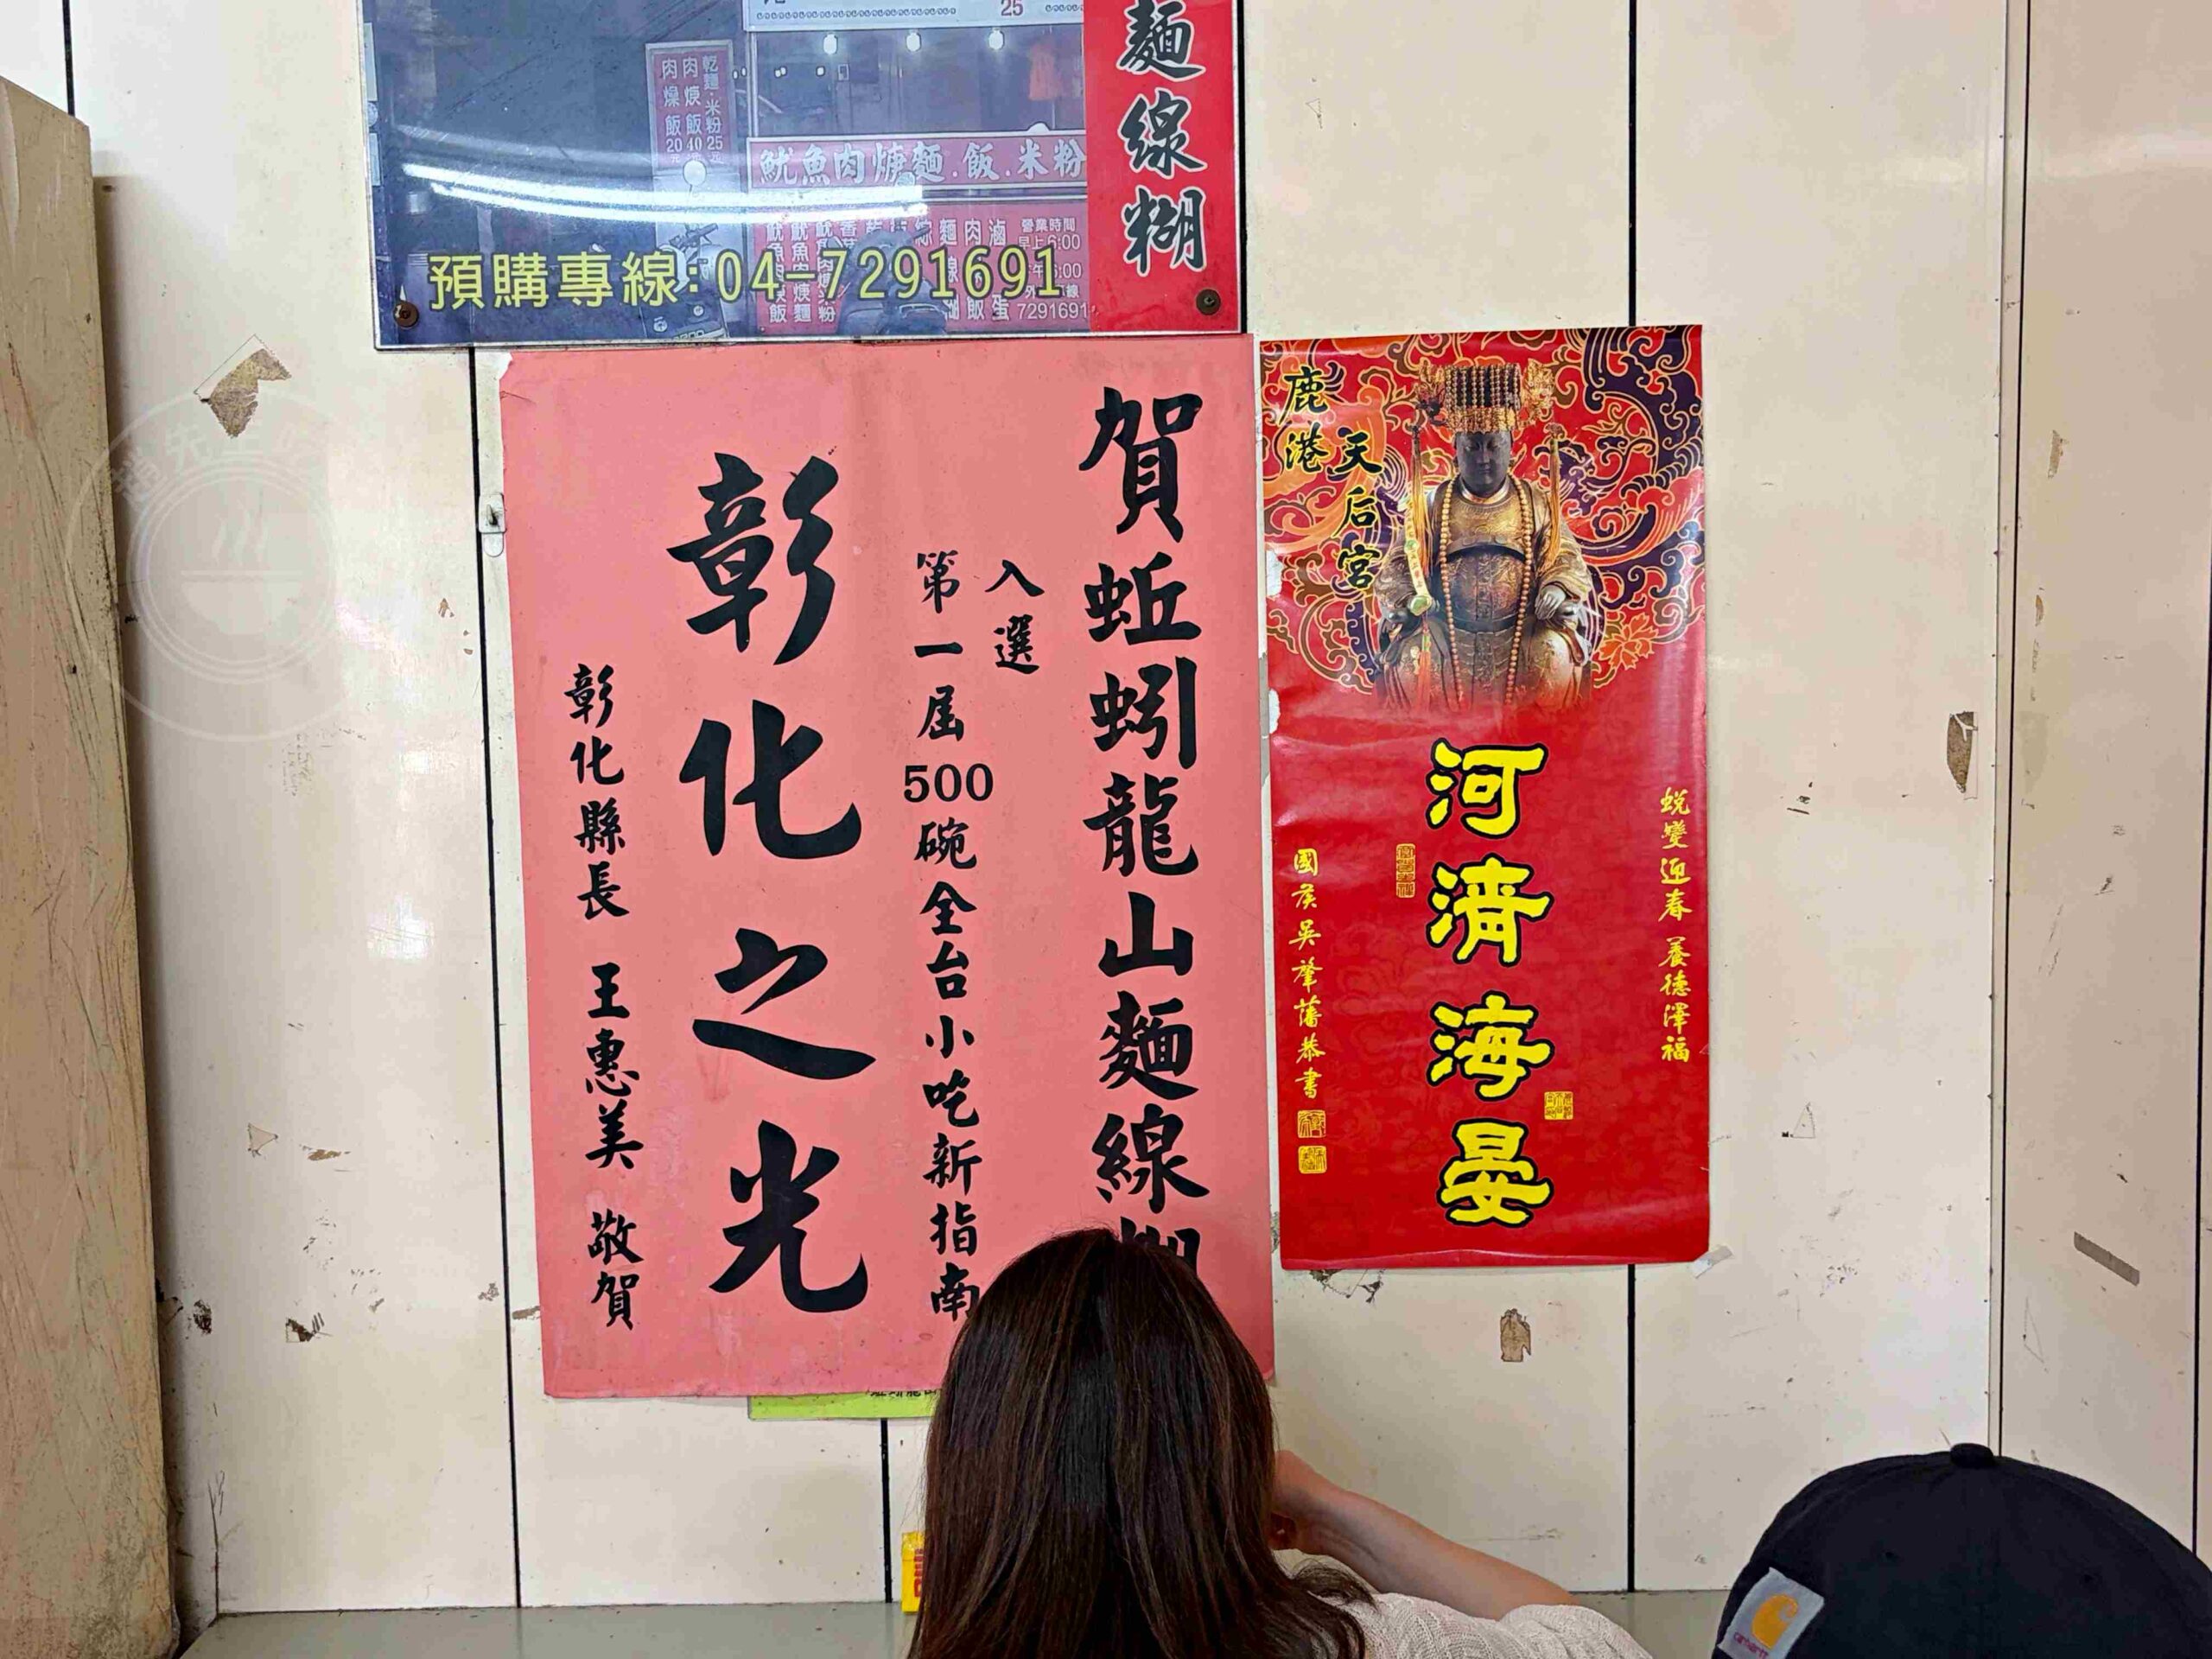 麵線糊
25
乾麵.米粉25元
肉焿飯40元
肉燥飯20元
魷魚肉焿麵.飯.米粉
營業時間
早上6:00
7291691
預購專線:04-7291691
賀蚯蚓龍山麵線糊
入選
第一屆500碗全台小吃新指南
彰化之光
彰化縣長 王惠美 敬賀
鹿港
天后宮
蛻變迎春 養德澤福
河清海晏
國庆吳肇藩恭書
carhartt